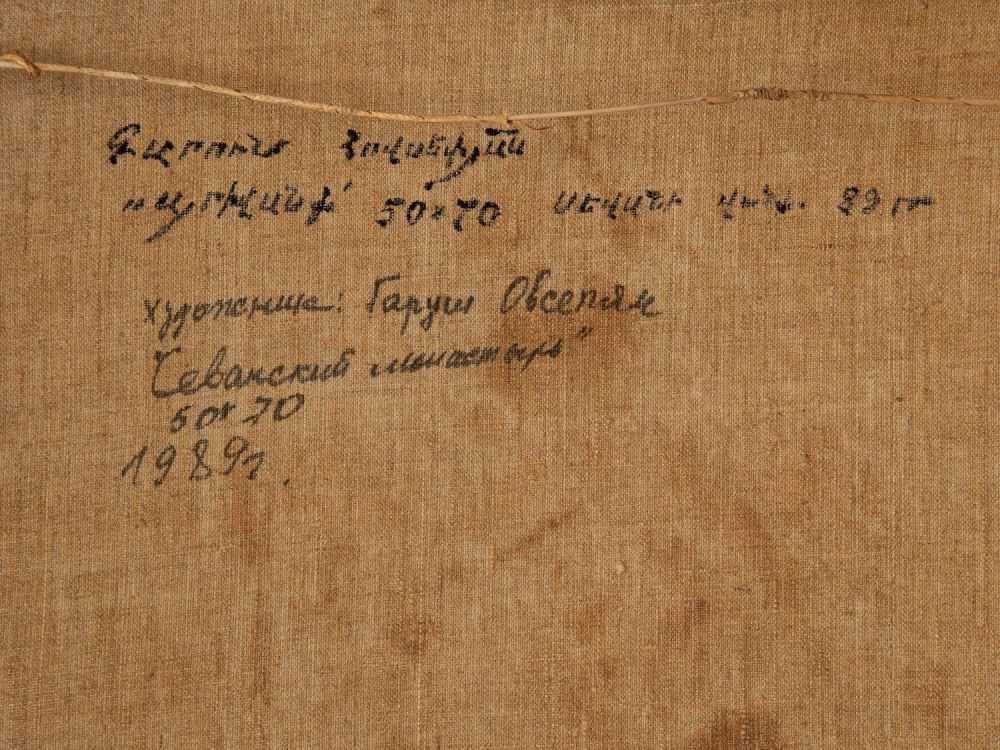 Գարուշ Հովսեփյան
50×70 Սևանի վանք. 89 թ
художник: Гаруш Овсепян
Севанский монастырь"
50×70
1989г.